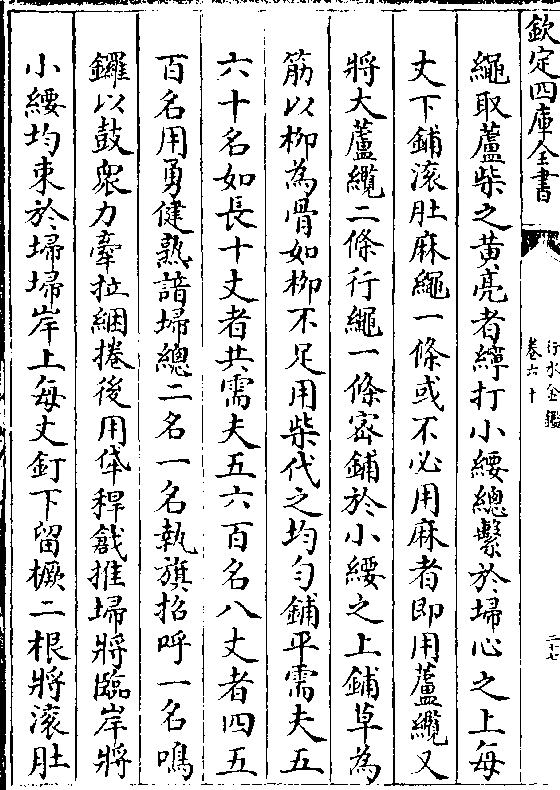 欽定四庫全書
行水金鑑
卷六十
二十七
繩取蘆柴之黄亮者䌯打小緌總繫於埽心之上每
丈下鋪滚肚麻繩一條或不必用麻者即用蘆纜又
將大蘆纜二條行繩一條宻鋪於小緌之上鋪草為
筋以柳為骨如柳不足用柴代之均匀鋪平需夫五
六十名如長十丈者共需夫五六百名八丈者四五
百名用勇健熟諳埽總二名一名執旗招呼一名鳴
鑼以鼓衆力牽拉綑捲後用牮稈戧推埽將臨岸將
小緌均束於埽埽岸上每丈釘下留橛二根將滚肚